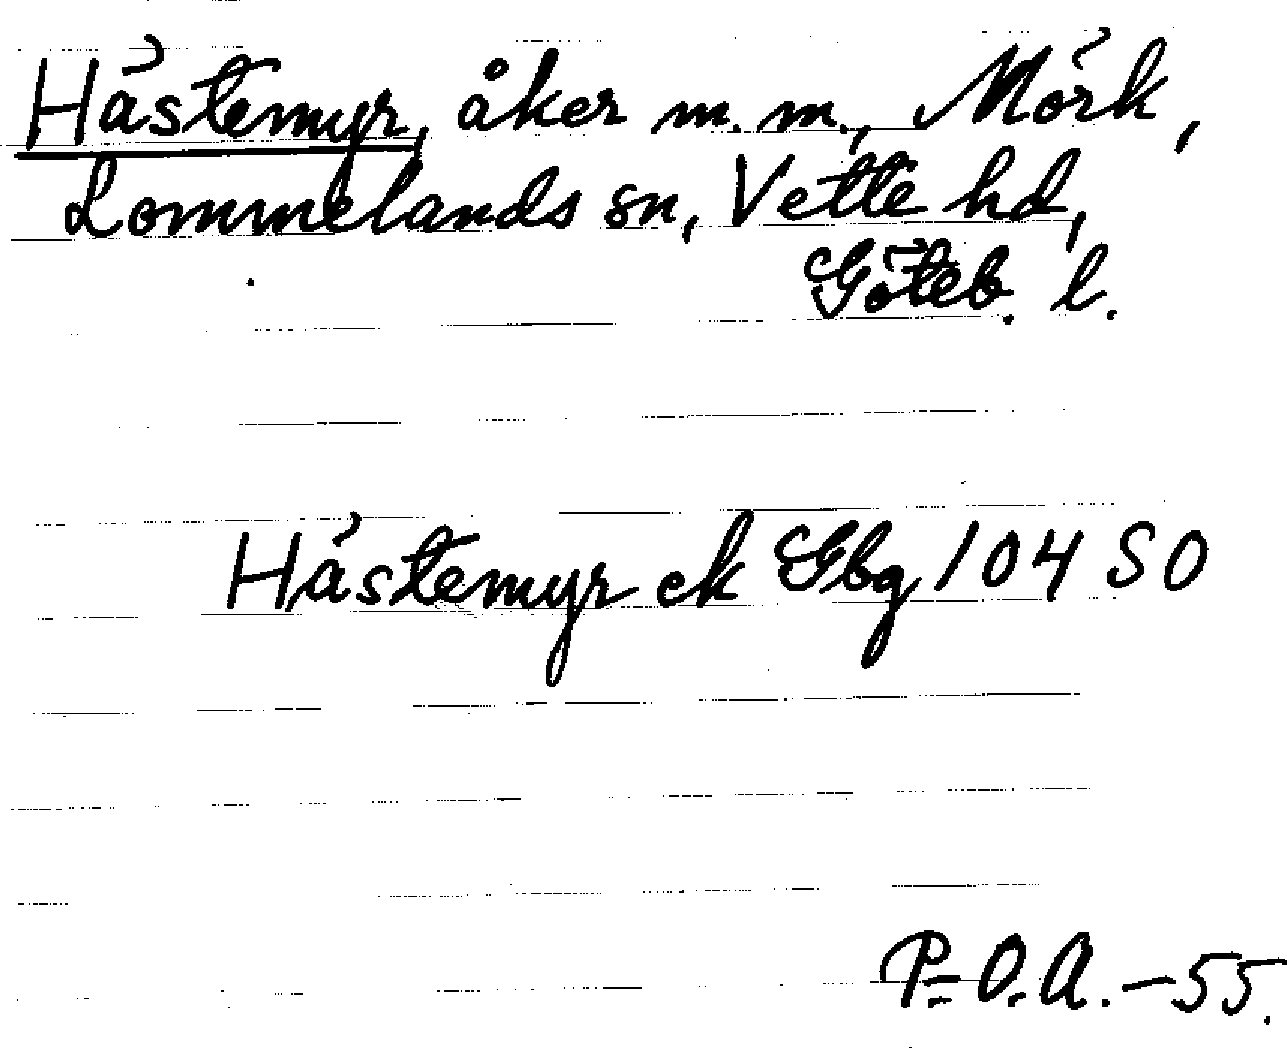 Hästemyr, åker m.m., Mörk,
Lommelands sn, Vette hd,
Göteb. l.
Hästemyr ek Gbg 104 SO
P.-O.A. -55.